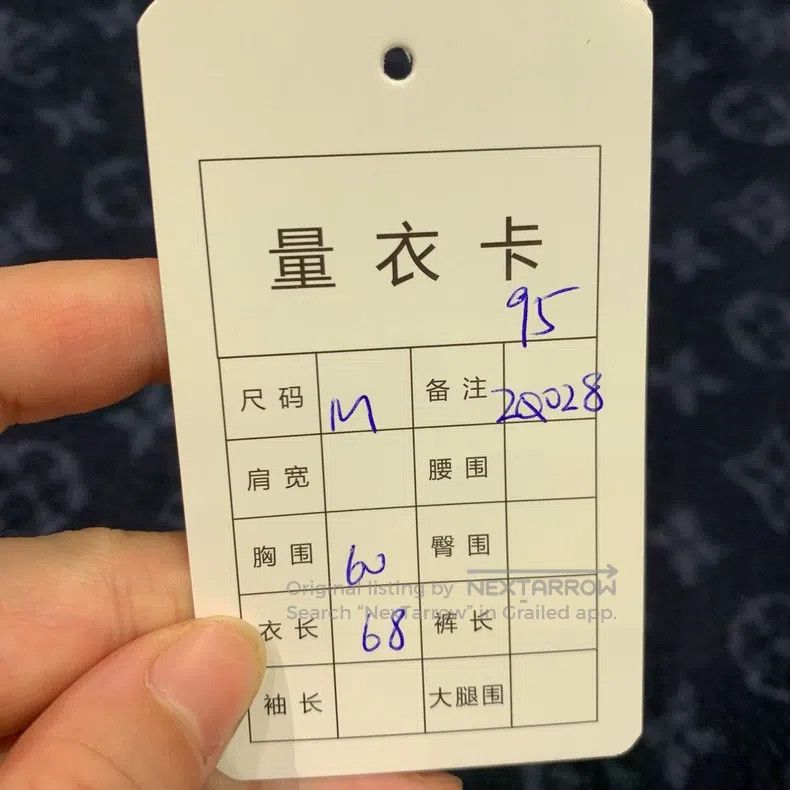 量衣卡
95
尺码 M 备注 2Q028
肩宽 腰围
胸围 60 臀围
Original listing by NEXTARROW
Search "NexTarrow" in Grailed app.
衣长 68 裤长
袖长 大腿围